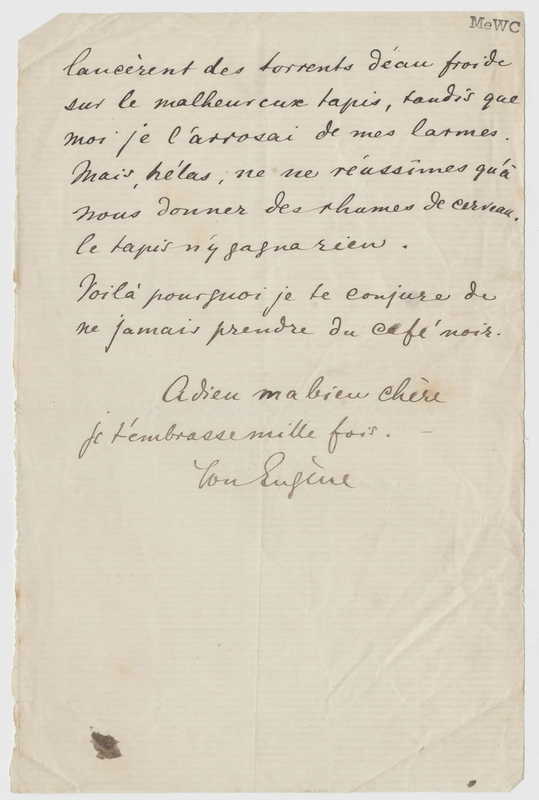 MeWC
lancèrent des torrents d'éau froide
sur le malheureux tapis, tandis que
moi je l'arrosai de mes larmes.
Mais, hélas, ne ne réussîmes qu'à
nous donner des rhumes de cerveau.
le tapis n'y gagna rien.
Voilà pourquoi je te conjure de
ne jamais prendre du café noir.
Adieu ma bien chère
je t'embrasse mille fois. —
Ton Eugène